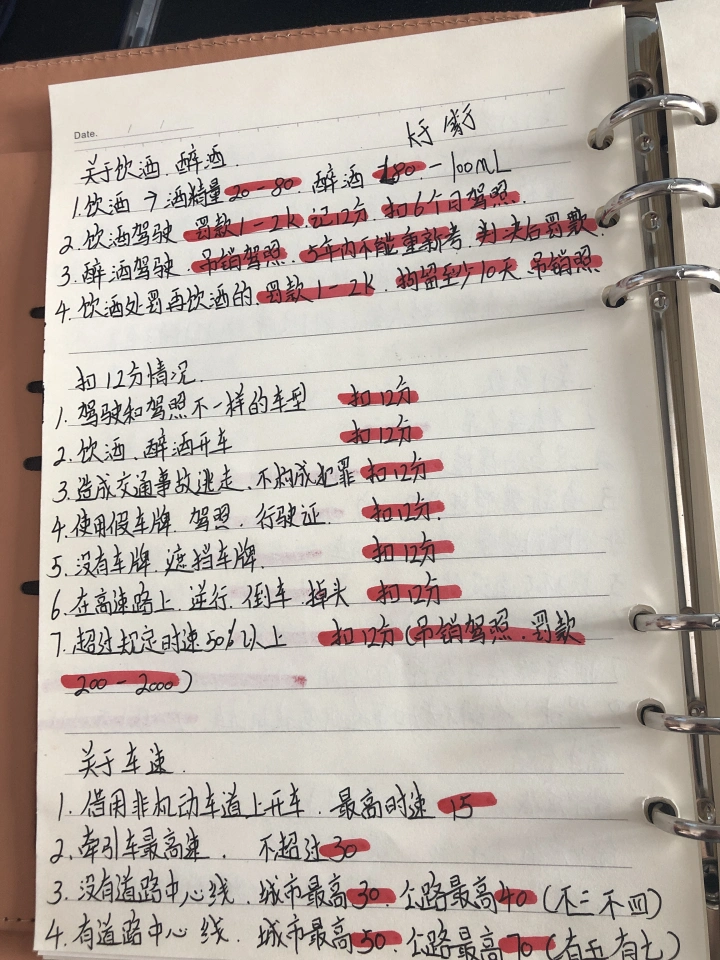 Date. / /
关于饮酒.醉酒.
1.饮酒 → 酒精量20-80. 醉酒 180.-100mL
2.饮酒驾驶 罚款1-2k.记12分.扣6个月驾照.
3.醉酒驾驶.吊销驾照.5年内不能重新考.判决后罚款.
4.饮酒处罚再饮酒的.罚款1-2k.拘留至少10天.吊销照
扣12分情况.
1.驾驶和驾照不一样的车型 扣12分
2.饮酒.醉酒开车 扣12分
3.造成交通事故逃走.不构成犯罪 扣12分
4.使用假车牌.驾照.行驶证. 扣12分.
5.没有车牌.遮挡车牌. 扣12分
6.在高速路上.逆行.倒车.掉头 扣12分
7.超过规定时速50%以上 扣12分(吊销驾照.罚款
200-2000)
关于车速.
1.借用非机动车道上开车.最高时速 15
2.牵引车最高速. 不超过30
3.没有道路中心线.城市最高30.公路最高40(不三不四)
4.有道路中心线.城市最高50.公路最高70(有五有七)